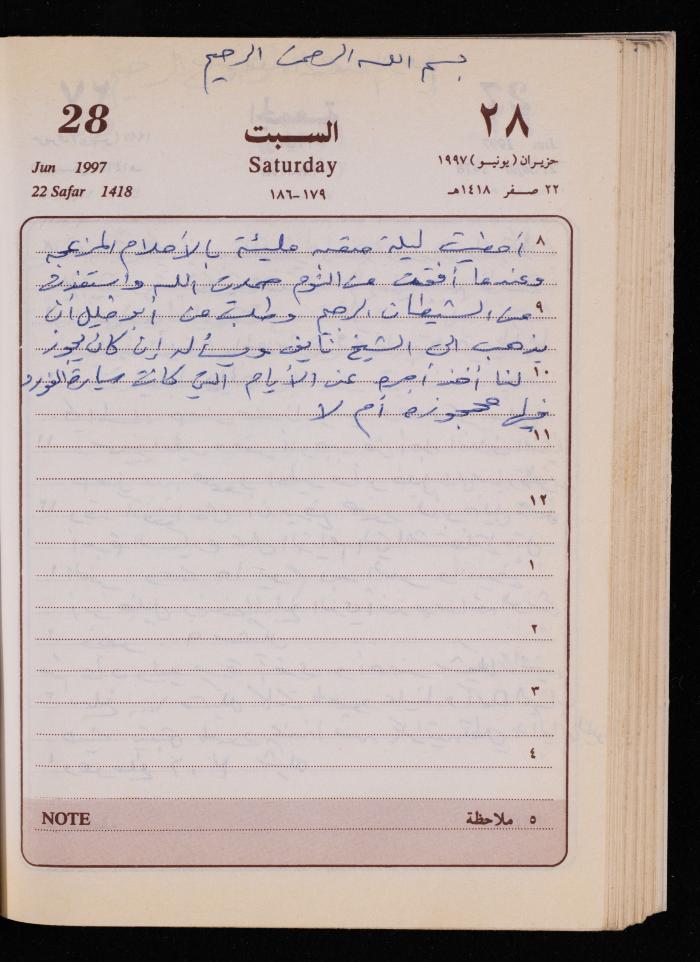 بسم الله الرحمن الرحيم
28
السبت
٢٨
Jun 1997
Saturday
حزيران (يونيو) ١٩٩٧
22 Safar 1418
١٧٩-١٨٦
٢٢ صفر ١٤١٨هـ
٨ أمضيت ليلة متعبه مليئة بالأحلام المزعجه
وعندما أفقت من النوم حمدت الله واستغفرت
٩ من الشيطان الرجيم وطلبت من أبو خليل أن
يذهب الى الشيخ نايف ويسأله إن كان يجوز
١٠ لنا أخذ أجره عن الأيام التي كانت سيارة الفورد
فيها محجوزه أم لا
١١
١٢
١
٢
٣
٤
NOTE
٥ ملاحظة